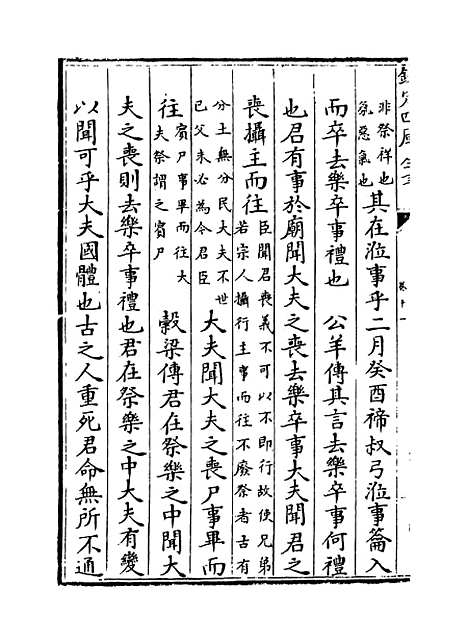 非祭祥也
氛惡氣也
其在涖事乎二月癸酉禘叔弓涖事籥入
而卒去樂卒事禮也　公羊傳其言去樂卒事何禮
也君有事於廟聞大夫之喪去樂卒事大夫聞君之
喪攝主而往
臣聞君喪義不可以不即行故使兄弟
若宗人攝行主事而往不廢祭者古有
分土無分民大夫不世
已父未必為今君臣
大夫聞大夫之喪尸事畢而
往
賓尸事畢而往大
夫祭謂之賓尸
穀梁傳君在祭樂之中聞大
夫之喪則去樂卒事禮也君在祭樂之中大夫有變
以聞可乎大夫國體也古之人重死君命無所不通